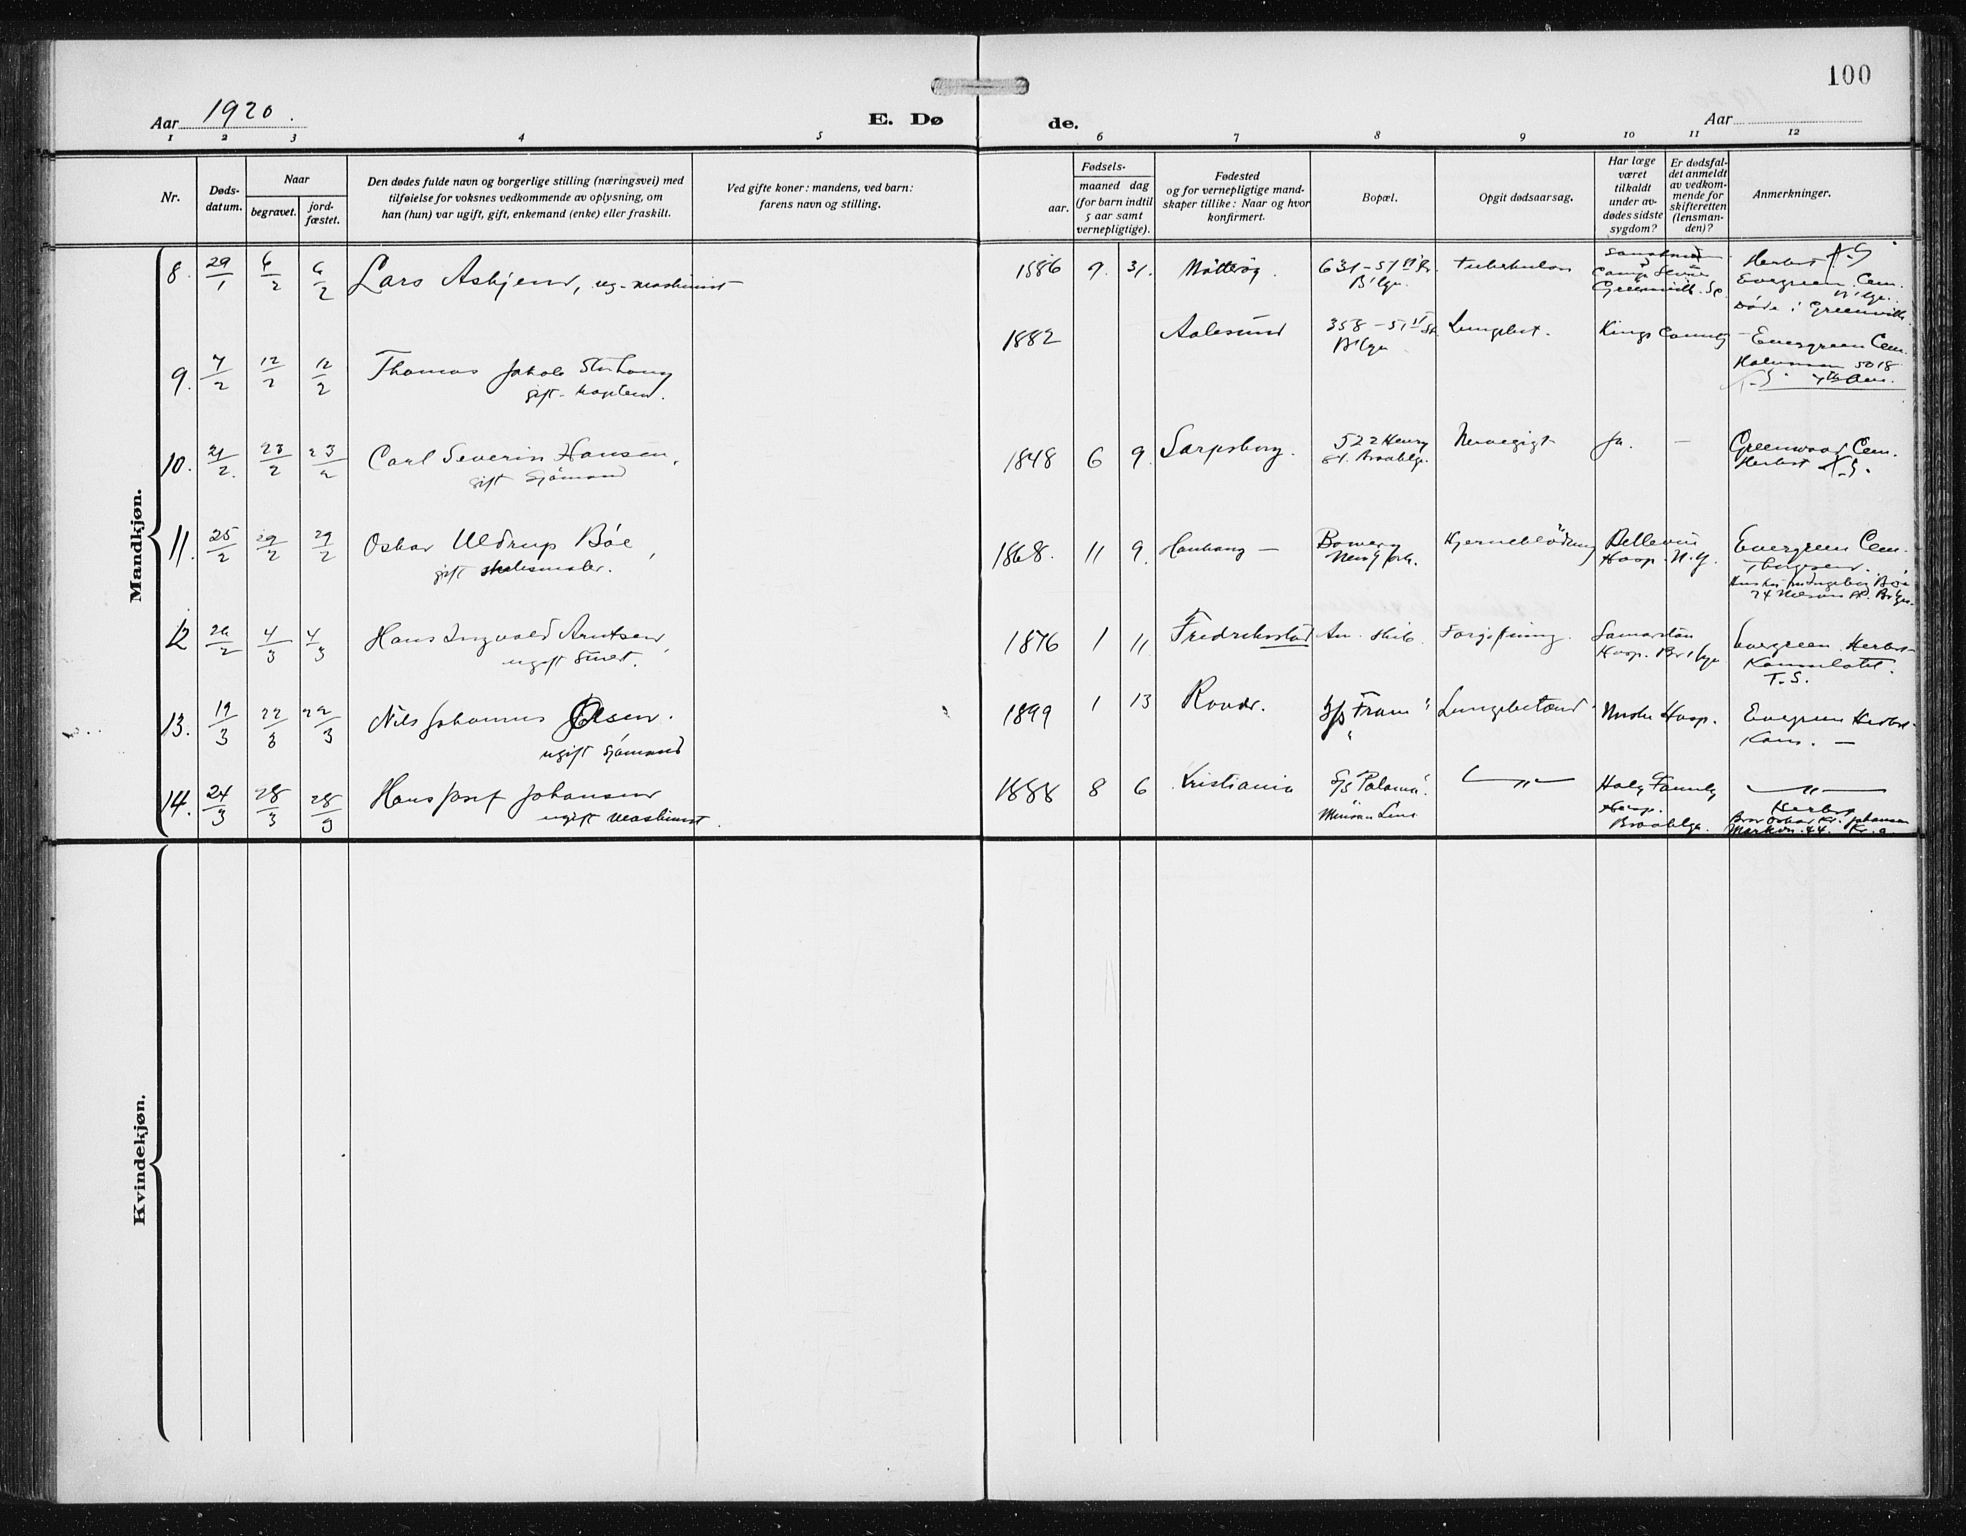 100
Aar 1920.
E. Døde.
Aar
1 2 3 4 5 6 7 8 9 10 11 12
Nr.
Døds-
datum.
Naar
begravet.
jord-
fæstet.
Den dødes fulde navn og borgerlige stilling (næringsvei) med
tilføielse for voksnes vedkommende av oplysning, om
han (hun) var ugift, gift, enkemand (enke) eller fraskilt.
Ved gifte koner: mandens, ved barn:
farens navn og stilling.
Fødsels-
aar.
maaned dag
(for barn indtil
5 aar samt
vernepligtige).
Fødested
og for vernepligtige mand-
skaper tillike: Naar og hvor
konfirmert.
Bopæl.
Opgit dødsaarsag.
Har læge
været
tilkaldt
under av-
dødes sidste
sygdom?
Er dødsfal-
det anmeldt
av vedkom-
mende for
skifteretten
(lensman-
den)?
Anmerkninger.
Mandkjøn.
8. 29/1 6/2 6/2 Lars Asbjend, ug. maskinist 1886 9. 31. 631-51 St. Tuberkulos Camp Herbst
B'lyn. Greenville. Evergreen Cem.
Døde i Greenville.
9. 7/2 12/2 12/2 Thomas Jakob 1882 Aalesund 358-51 St. Lungebet. Kings County - Evergreen Cem.
gift. kaptein. B'lyn. 5018
7th Ave.
10. 21/2 23/2 23/2 Carl Severin Hansen, 1848 6 9. Sarpsborg. 522 Henry Nervegigt Ja. - Greenwood Cem.
gift Sjömand St. Herbst
11. 25/2 29/2 29/2 Oskar Uldrup Böe, 1868. 11 9. - Bowery Hjerneblödning Bellevue Evergreen Cem.
gift New York. Hosp. N.Y.
12 29/2 4/3 4/3 Hans Ingvald Arntsen, 1876 1 11 Fredrikstad Forgiftning. Samaritan Evergreen Herbst
ugift Hosp. Br'lyn Konsulatet
T.S.
13. 19/3 22/3 22/3 Nils Johannes Olsen. 1899 1 13 S/S "Fram" Lungebetænd. Hosp. Evergreen Herbst
ugift Sjömand Kons. -
14. 24/3 28/3 28/3 Hans Josef Johansen 1888 8 6 Kristiania S/S Holy Family - „ -
ugift maskinist. Line Hosp. Herbst
Brooklyn. Bror Oskar Kr. Johansen
Markvn. 44. Kr.a
Kvindekjøn.